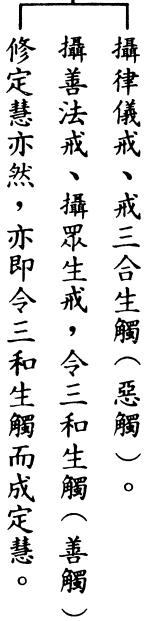 攝律儀戒、戒三合生觸（惡觸）。
攝善法戒、攝眾生戒，令三和生觸（善觸）
修定慧亦然，亦即令三和生觸而成定慧。